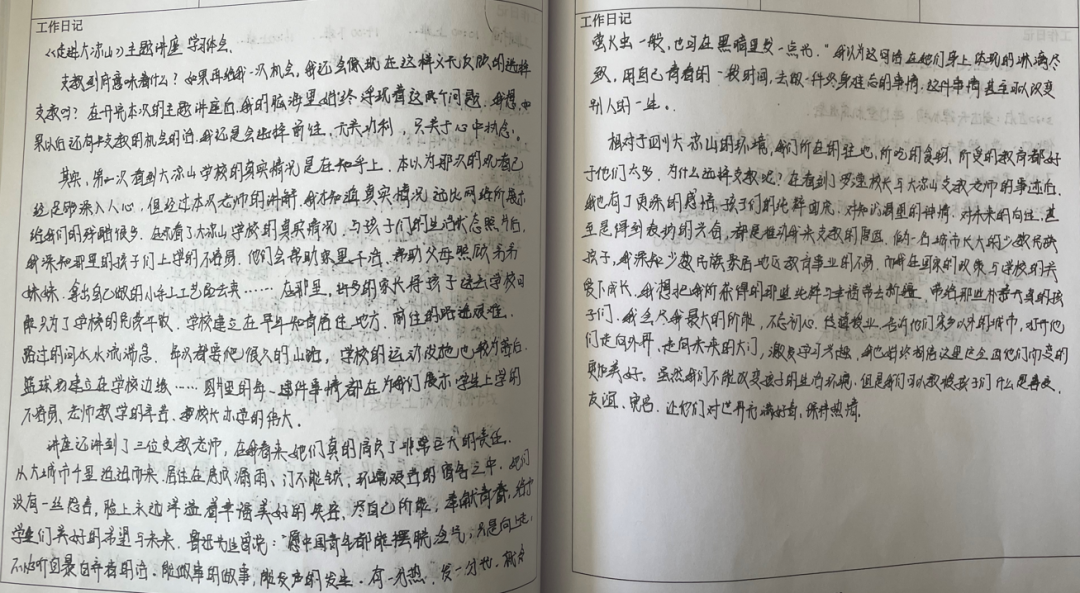 工作日记
《走进大凉山》主题讲座学习体会
支教到底意味着什么？如果再给我一次机会，我还会像现在这样义无反顾的选择
支教吗？在开完本次的主题讲座后，我的脑海里始终浮现着这两个问题，我想，如
果以后还有去支教的机会的话，我还是会选择前往，无关功利，只关于心中执念。
其实，第一次看到大凉山学校的真实情况是在知乎上，本以为那次的观看已
经足够深入人心，但经过本次老师的讲解，我才知道真实情况远比网络所展示
给我们的残酷很多，在观看了大凉山学校的真实情况，与孩子们的生活状态照片后，
我深知那里的孩子们上学的不容易，他们会帮助家里干活，帮助父母照顾弟弟
妹妹，拿出自己做的小手工艺品去卖……在那里，许多的家长将孩子送去学校可
能只为了学校的免费午饭，学校建立在旱年如有居住地方，前往的路途艰难，
路过的河水水流湍急，每次都要爬很久的山路，学校的运动设施也较为落后，
篮球场建立在学校边缘……图片里的每一件事情都在为我们展示学生上学的
不容易、老师教学的辛苦、校长办学的伟大。
讲座还讲到了三位支教老师，在我看来她们真的肩负了非常巨大的责任，
从大城市千里迢迢而来，居住在屋顶漏雨、门不能锁，环境艰苦的宿舍之中，她们
没有一丝怨言，脸上永远洋溢着幸福美好的笑容，尽自己所能，奉献青春，给予
学生们美好的希望与未来，鲁迅先生曾说：“愿中国青年都能摆脱冷气，只是向上走，
不必听自暴自弃者的话，能做事的做事，能发声的发生，有一分热，发一分光，就令
工作日记
萤火虫一般，也可在黑暗里发一点光。”我认为这句话在他们身上体现的淋漓尽
致，用自己青春的一段时间，去做一件终身难忘的事情，这件事情甚至可以改变
别人的一生。
相对于四川大凉山的环境，我们所在的驻地，所吃的食物，所受的教育都好
于他们太多，为什么选择支教呢？在看到了罗逵校长与大凉山支教老师的事迹后，
我也有了更深的感悟，孩子们的纯粹面庞，对知识渴望的神情，对未来的向往，甚
至是得到教材的兴奋，都是推动我来支教的原因，做为一名城市长大的少数民族
孩子，我深知少数民族聚居地区教育事业的不易，而我在国家的政策与学校的关
爱下成长，我想把我所获得的那些纯粹与幸福带去那里，带给那些朴素天真的孩
子们，我会尽我最大的所能，不忘初心，传道授业，告诉他们家乡以外的城市，打开他
们走向外界，走向未来的大门，激发学习兴趣，我也始终相信这里还会因他们而变的
更加美好。虽然我们不能改变孩子的生活环境，但是我们可以教授孩子们什么是善良、
友谊、宽容，让他们对世界充满好奇，保持热情。